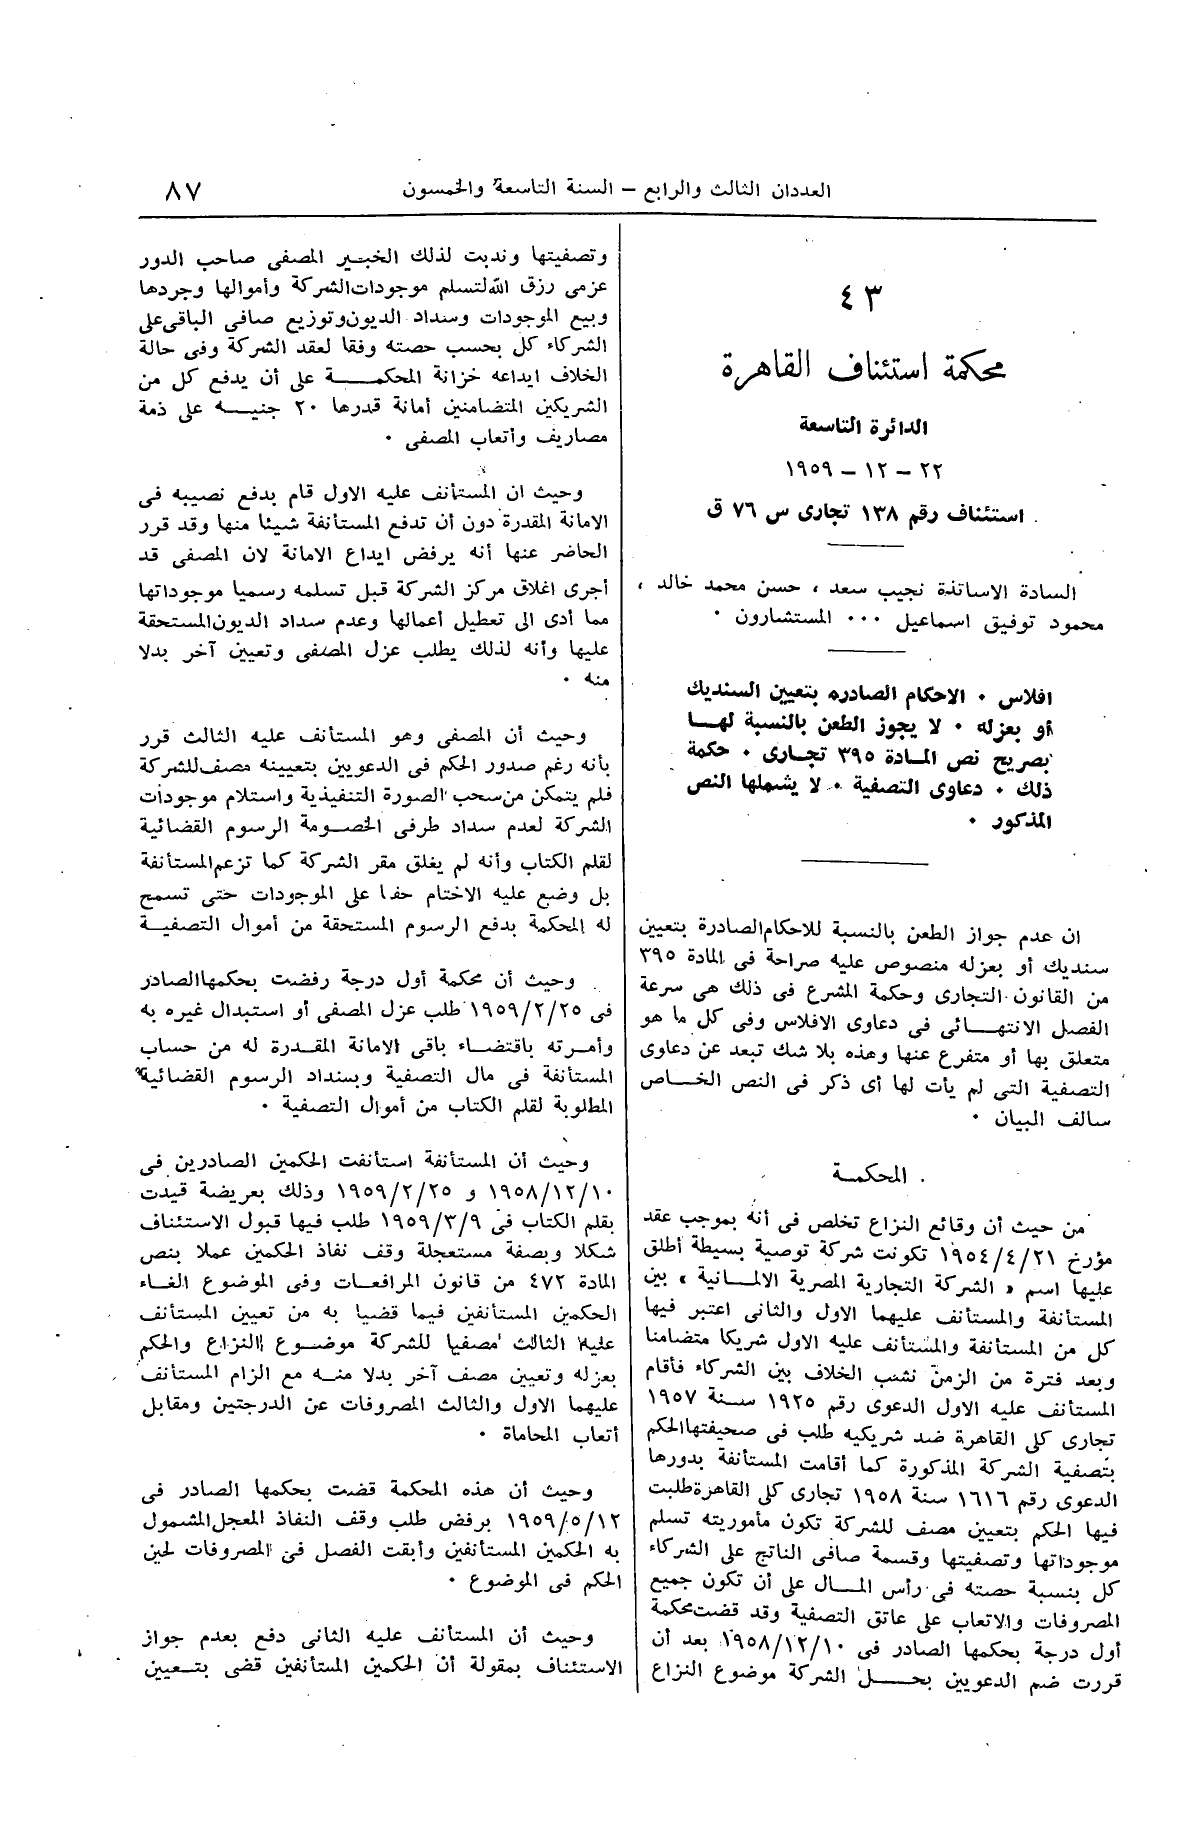 العددان الثالث والرابع – السنة التاسعة والخمسون
٨٧
٤٣
محكمة استئناف القاهرة
الدائرة التاسعة
٢٢ – ١٢ – ١٩٥٩
استئناف رقم ١٣٨ تجارى س ٧٦ ق
السادة الاساتذة نجيب سعد ، حسن محمد خالد ،
محمود توفيق اسماعيل ٠٠٠ المستشارون ٠
افلاس ٠ الاحكام الصادره بتعيين السنديك
أو بعزله ٠ لا يجوز الطعن بالنسبة لهـــا
بصريح نص المـادة ٣٩٥ تجـارى ٠ حكمة
ذلك ٠ دعاوى التصفية ٠ لا يشملها النص
المذكور ٠
ان عدم جواز الطعن بالنسبة للاحكام الصادرة بتعيين
سنديك أو بعزله منصوص عليه صراحة فى المادة ٣٩٥
من القانون التجارى وحكمة المشرع فى ذلك هى سرعة
الفصل الانتهـــائى فى دعاوى الافلاس وفى كل ما هو
متعلق بها أو متفرع عنها وهذه بلا شك تبعد عن دعاوى
التصفية التى لم يأت لها أى ذكر فى النص الخـــاص
سالف البيان ٠
المحكمـة
من حيث أن وقائع النزاع تخلص فى أنه بموجب عقد
مؤرخ ١٩٥٤/٤/٢١ تكونت شركة توصية بسيطة أطلق
عليها اسم « الشركة التجارية المصرية الالمـــانية » بين
المستأنفة والمستأنف عليهما الاول والثانى اعتبر فيها
كل من المستأنفة والمستأنف عليه الاول شريكا متضامنا
وبعد فترة من الزمن نشب الخلاف بين الشركاء فأقام
المستأنف عليه الاول الدعوى رقم ١٩٢٥ ســنة ١٩٥٧
تجارى كلى القاهرة ضد شريكيه طلب فى صحيفتها الحكم
بتصفية الشركة المذكورة كما أقامت المستأنفة بدورها
الدعوى رقم ١٦١٦ سنة ١٩٥٨ تجارى كلى القاهرة طلبت
فيها الحكم بتعيين مصف للشركة تكون مأموريته تسلم
موجوداتها وتصفيتها وقسمة صافى الناتج على الشركاء
كل بنسبة حصته فى رأس المـــال على أن تكون جميع
المصروفات والاتعاب على عاتق التصفية وقد قضت محكمة
أول درجة بحكمها الصادر فى ١٩٥٨/١٢/١٠ بعد أن
قررت ضم الدعويين بحـــل الشركة موضوع النزاع
وتصفيتها وندبت لذلك الخبير المصفى صاحب الدور
عزمى رزق الله لتسلم موجودات الشركة وأموالها وجردها
وبيع الموجودات وسداد الديون وتوزيع صافى الباقى على
الشركاء كل بحسب حصته وفقا لعقد الشركة وفى حالة
الخلاف ايداعه خزانة المحكمـــــة على أن يدفع كل من
الشريكين المتضامنين أمانة قدرها ٢٠ جنيـــه على ذمة
مصاريف وأتعاب المصفى ٠
وحيث ان المستأنف عليه الاول قام بدفع نصيبه فى
الامانة المقدرة دون أن تدفع المستأنفة شيئا منها وقد قرر
الحاضر عنها أنه يرفض ايداع الامانة لان المصفى قد
أجرى اغلاق مركز الشركة قبل تسلمه رسميا موجوداتها
مما أدى الى تعطيل أعمالها وعدم سداد الديون المستحقة
عليها وأنه لذلك يطلب عزل المصفى وتعيين آخر بدلا
منه ٠
وحيث أن المصفى وهو المستأنف عليه الثالث قرر
بأنه رغم صدور الحكم فى الدعويين بتعيينه مصف للشركة
فلم يتمكن من سحب الصورة التنفيذية واستلام موجودات
الشركة لعدم سداد طرفى الخصـومة الرسوم القضائية
لقلم الكتاب وأنه لم يغلق مقر الشركة كما تزعم المستأنفة
بل وضع عليه الاختام حفا على الموجودات حتى تسمح
له المحكمة بدفع الرسوم المستحقة من أموال التصفيـــة
وحيث أن محكمة أول درجة رفضت بحكمها الصادر
فى ١٩٥٩/٢/٢٥ طلب عزل المصفى أو استبدال غيره به
وأمـرته باقتضـــاء باقى الامانة المقـدرة له من حساب
المستأنفة فى مال التصفية وبسداد الرسوم القضائية
المطلوبة لقلم الكتاب من أموال التصفية ٠
وحيث أن المستأنفة استأنفت الحكمين الصادرين فى
١٩٥٨/١٢/١٠ و ١٩٥٩/٢/٢٥ وذلك بعريضة قيدت
بقلم الكتاب فى ١٩٥٩/٣/٩ طلب فيها قبول الاستئناف
شكلا وبصفة مستعجلة وقف نفاذ الحكمين عملا بنص
المادة ٤٧٢ من قانون المرافعـات وفى الموضوع الغـاء
الحكمين المستأنفين فيما قضيا به من تعيين المستأنف
عليه الثالث مصفيا للشركة موضـــوع النزاع والحكم
بعزله وتعيين مصف آخر بدلا منـه مع الزام المستأنف
عليهما الاول والثالث المصروفات عن الدرجتين ومقابل
أتعاب المحاماة ٠
وحيث أن هذه المحكمة قضت بحكمها الصادر فى
١٩٥٩/٥/١٢ برفض طلب وقف النفاذ المعجل المشمول
به الحكمين المستأنفين وأبقت الفصل فى المصروفات لحين
الحكم فى الموضوع ٠
وحيث أن المستأنف عليه الثانى دفع بعدم جواز
الاستئناف بمقولة أن الحكمين المستأنفين قضى بتــعيين